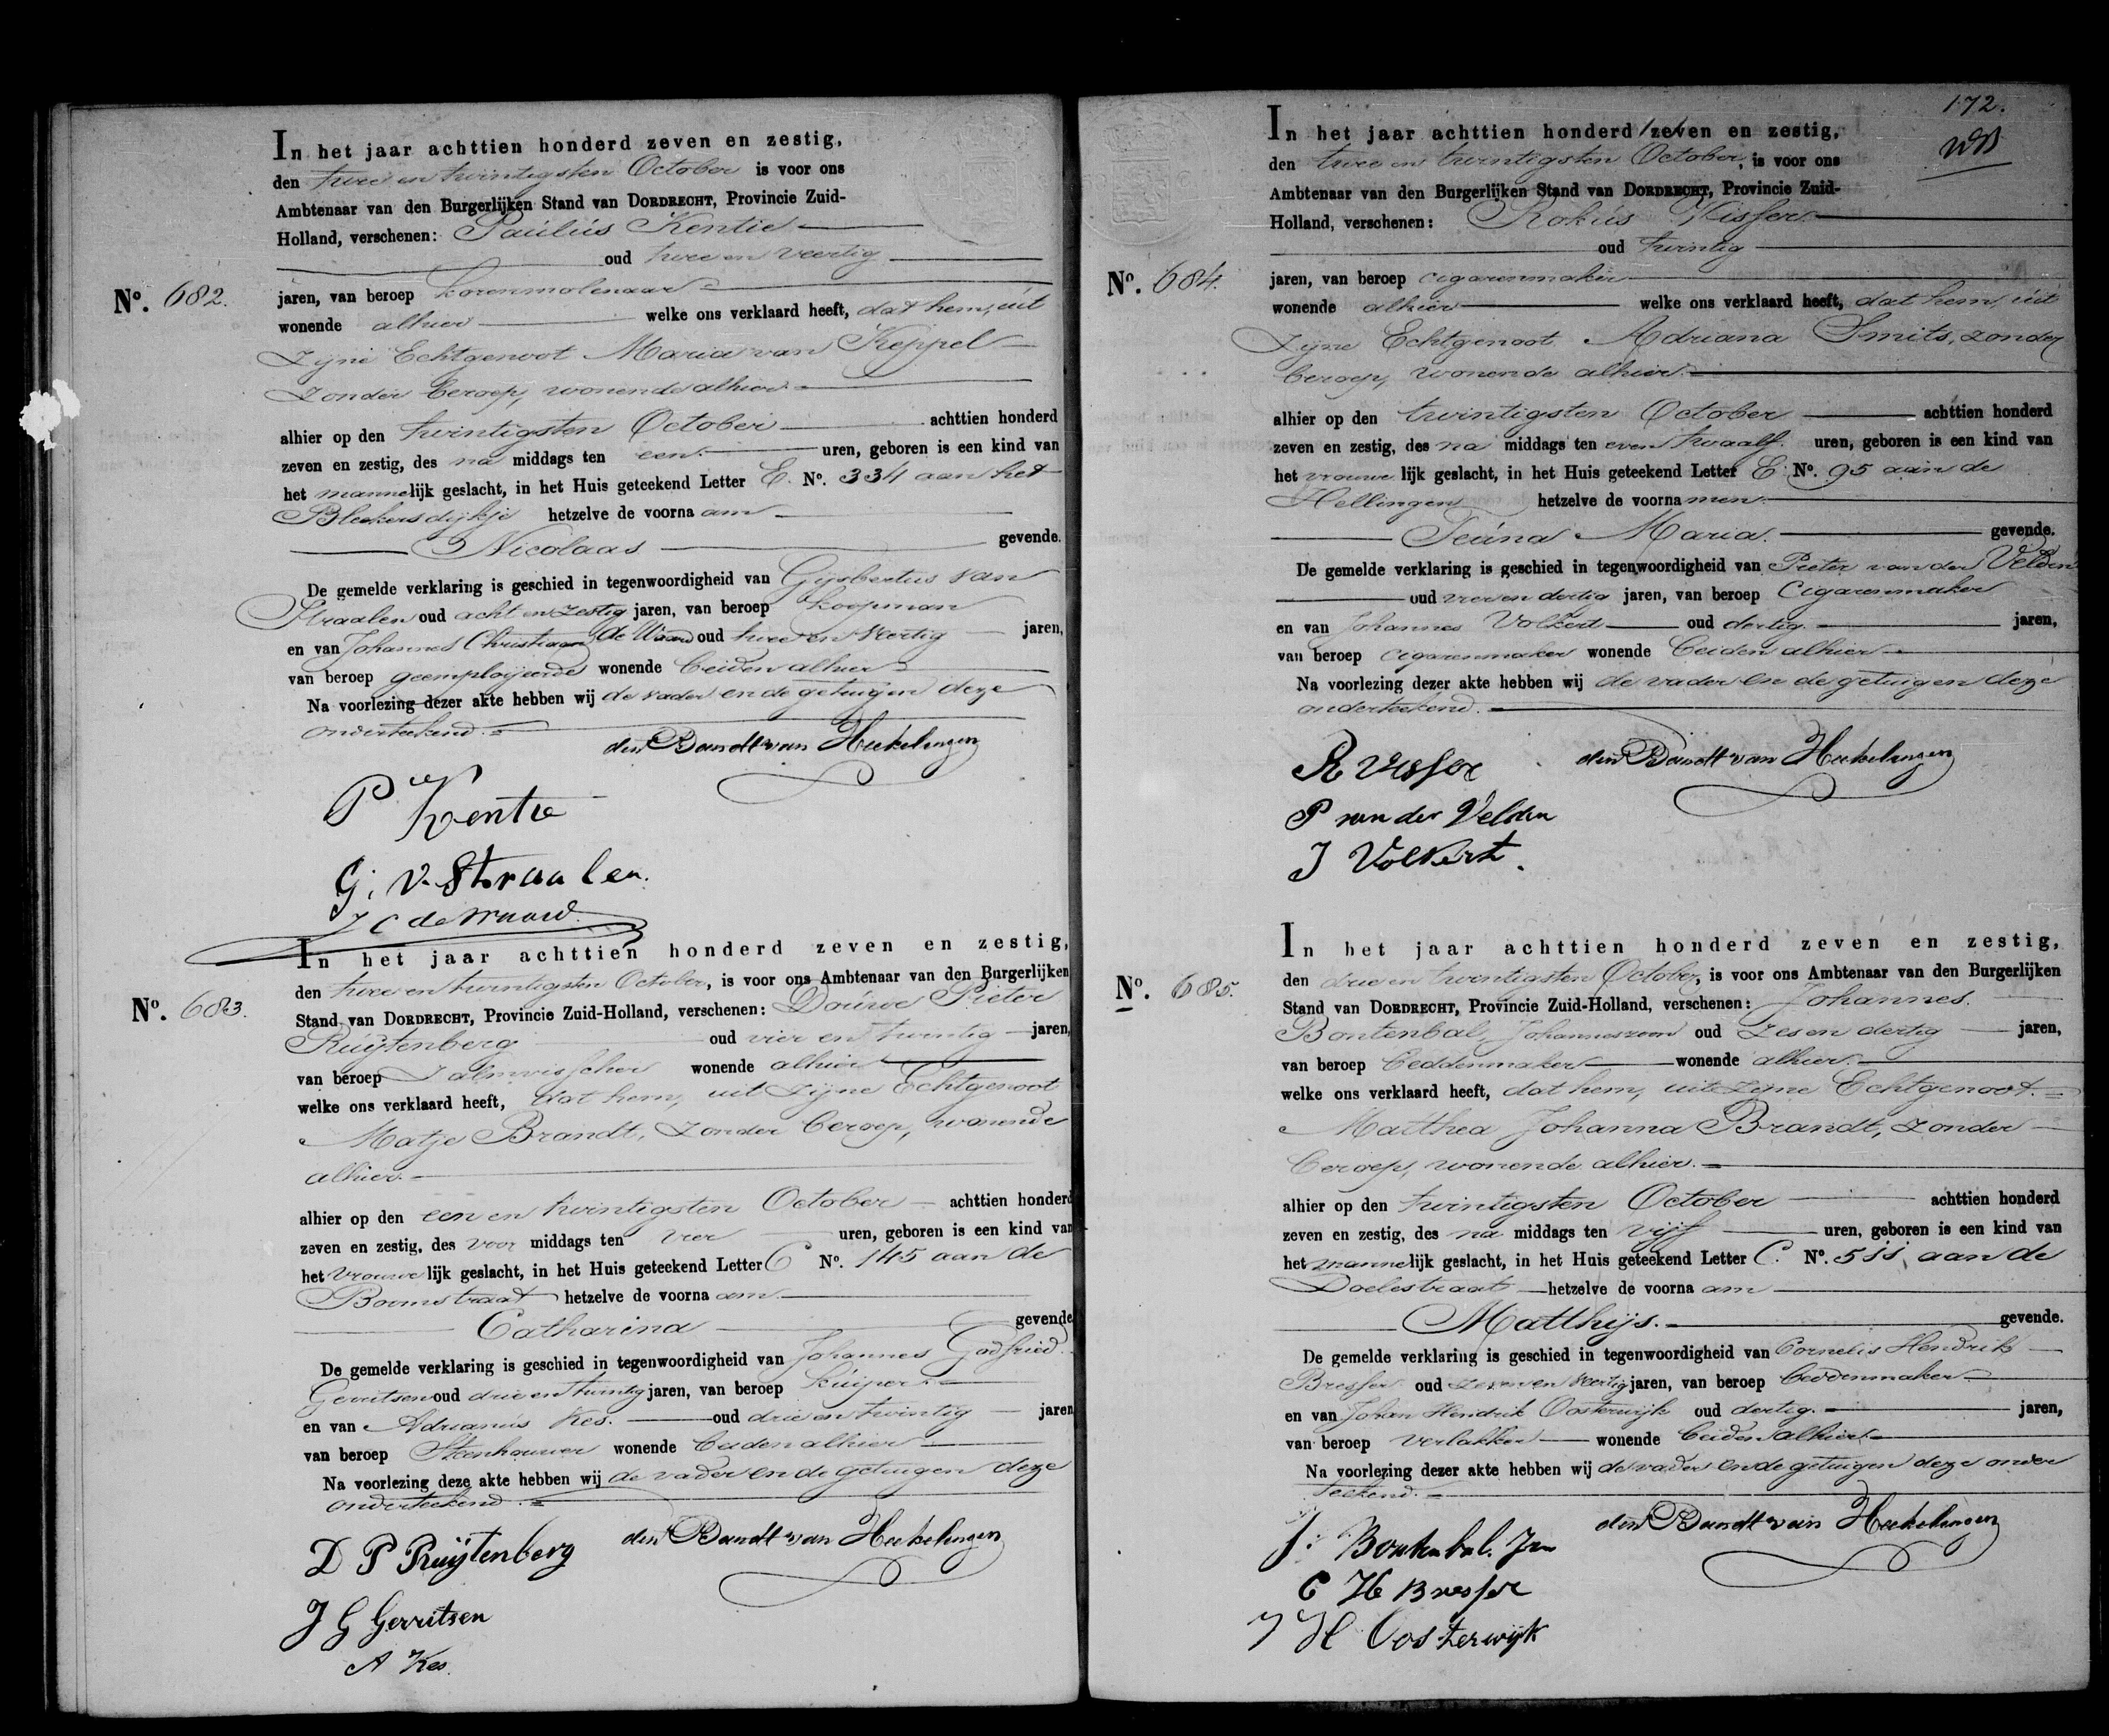 In het jaar achttien honderd zeven en zestig,
den twee en twintigsten October is voor ons
Ambtenaar van den Burgerlijken Stand van DORDRECHT, Provincie Zuid-
Holland, verschenen: Paulus Kentie
oud twee en veertig
No. 682.
jaren, van beroep korenmolenaar
wonende alhier welke ons verklaard heeft, dat hem, uit
zijne Echtgenoot Maria van Keppel
zonder beroep, wonende alhier.
alhier op den twintigsten October achttien honderd
zeven en zestig, des na middags ten een uren, geboren is een kind van
het mannelijk geslacht, in het Huis geteekend Letter E. No. 334 aan het
Bleekersdijkje hetzelve de voorna am
Nicolaas gevende.
De gemelde verklaring is geschied in tegenwoordigheid van Gijsbertus van
Straalen oud acht en zestig jaren, van beroep koopman
en van Johannes Christiaan de Waard oud twee en veertig jaren,
van beroep geemployeerde wonende beiden alhier
Na voorlezing dezer akte hebben wij de vader en de getuigen deze
onderteekend.
den Bandt van Heekelingen
P Kentie
G. v. Straalen.
J C de Waard.
In het jaar achttien honderd zeven en zestig,
den twee en twintigsten October, is voor ons Ambtenaar van den Burgerlijken
No. 683.
Stand van DORDRECHT, Provincie Zuid-Holland, verschenen: Douwe Pieter
Ruijtenberg oud vier en twintig jaren,
van beroep Zalmvisscher wonende alhier
welke ons verklaard heeft, dat hem, uit zijne Echtgenoot
Matje Brandt, zonder beroep, wonende
alhier.
alhier op den een en twintigsten October achttien honderd
zeven en zestig, des voor middags ten vier uren, geboren is een kind van
het vrouwe lijk geslacht, in het Huis geteekend Letter C No. 145 aan de
Boomstraat hetzelve de voorna am
Catharina gevende
De gemelde verklaring is geschied in tegenwoordigheid van Johannes Godfried
Gerritsen oud drie en twintig jaren, van beroep kuiper
en van Adrianus Kes. oud drie en twintig jaren
van beroep Steenhouwer wonende beiden alhier
Na voorlezing deze akte hebben wij de vader en de getuigen deze
onderteekend.
D P Ruijtenberg den Bandt van Heekelingen
J G Gerritsen
A Kes.
172.
In het jaar achttien honderd zeven en zestig,
den twee en twintigsten October, is voor ons
Ambtenaar van den Burgerlijken Stand van DORDRECHT, Provincie Zuid-
Holland, verschenen: Rokus Visser
oud twintig
No. 684.
jaren, van beroep cigarenmaker
wonende alhier welke ons verklaard heeft, dat hem, uit
Zijne Echtgenoot Adriana Smits, zonder
beroep, wonende alhier.
alhier op den twintigsten October achttien honderd
zeven en zestig, des na middags ten even twaalf uren, geboren is een kind van
het vrouwe lijk geslacht, in het Huis geteekend Letter E No. 95 aan de
Hellingen hetzelve de voorna men
Teuna Maria. gevende.
De gemelde verklaring is geschied in tegenwoordigheid van Pieter van der Velden
oud vier en dertig jaren, van beroep Cigarenmaker
en van Johannes Volkert oud dertig. jaren,
van beroep cigarenmaker wonende beiden alhier
Na voorlezing dezer akte hebben wij de vader en de getuigen deze
onderteekend.
R Visser den Bandt van Heekelingen
P van der Velden
J Volkert.
In het jaar achttien honderd zeven en zestig,
den drie en twintigsten October, is voor ons Ambtenaar van den Burgerlijken
No. 685.
Stand van DORDRECHT, Provincie Zuid-Holland, verschenen: Johannes
Bontenbal, Johanneszoon oud zes en dertig jaren,
van beroep beddenmaker wonende alhier.
welke ons verklaard heeft, dat hem, uit zijne Echtgenoot
Matthea Johanna Brandt, zonder
beroep, wonende alhier.
alhier op den twintigsten October achttien honderd
zeven en zestig, des na middags ten vijf uren, geboren is een kind van
het mannelijk geslacht, in het Huis geteekend Letter C. No. aan de
Doelestraat hetzelve de voorna am
Matthijs. gevende.
De gemelde verklaring is geschied in tegenwoordigheid van Cornelis Hendrik
Bresser oud zeven en veertig jaren, van beroep beddenmaker
en van Johan Hendrik Oosterwijk oud dertig. jaren,
van beroep verlakker wonende beiden alhier
Na voorlezing dezer akte hebben wij de vader en de getuigen deze onder
teekend.
J: Bontenbal. Jzn den Bandt van Heekelingen
C H Bresser
J H Oosterwijk